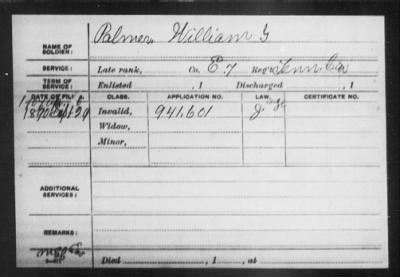 NAME OF SOLDIER: Palmer, William G
SERVICE: Late rank, Co. E 7 Reg't Tenn Cav
TERM OF SERVICE: Enlisted , 1 Discharged , 1
DATE OF FILING. CLASS. APPLICATION NO. LAW. CERTIFICATE NO.
Invalid, 941,601
Widow,
Minor,
ADDITIONAL SERVICES:
REMARKS:
Died , 1 , at